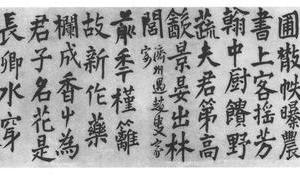 圃散帙曝農
書上客搖芳
翰中厨饋野
蔬夫君第高
飲景晏出林
閭
濟州過趙叟家宴
前年槿籬
故新作藥
欄成香艸為
君子名花是
長卿水穿